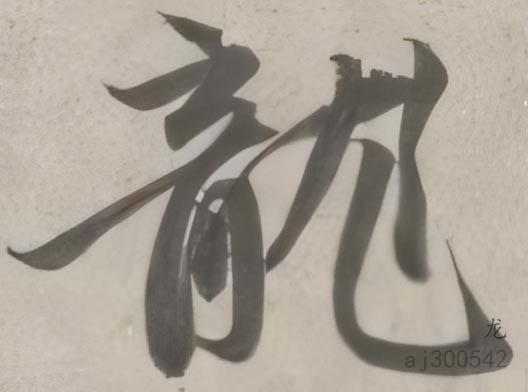 龍
龙
aj300542